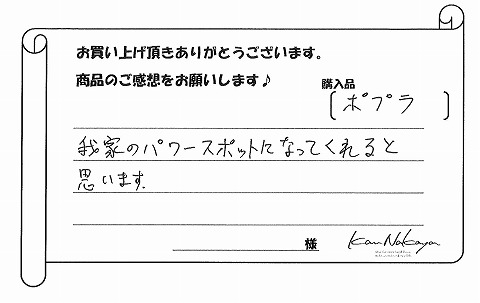 お買い上げ頂きありがとうございます。
商品のご感想をお願いします♪
購入品
[ポプラ]
我家のパワースポットになってくれると
思います。
様
Kan Nakaya